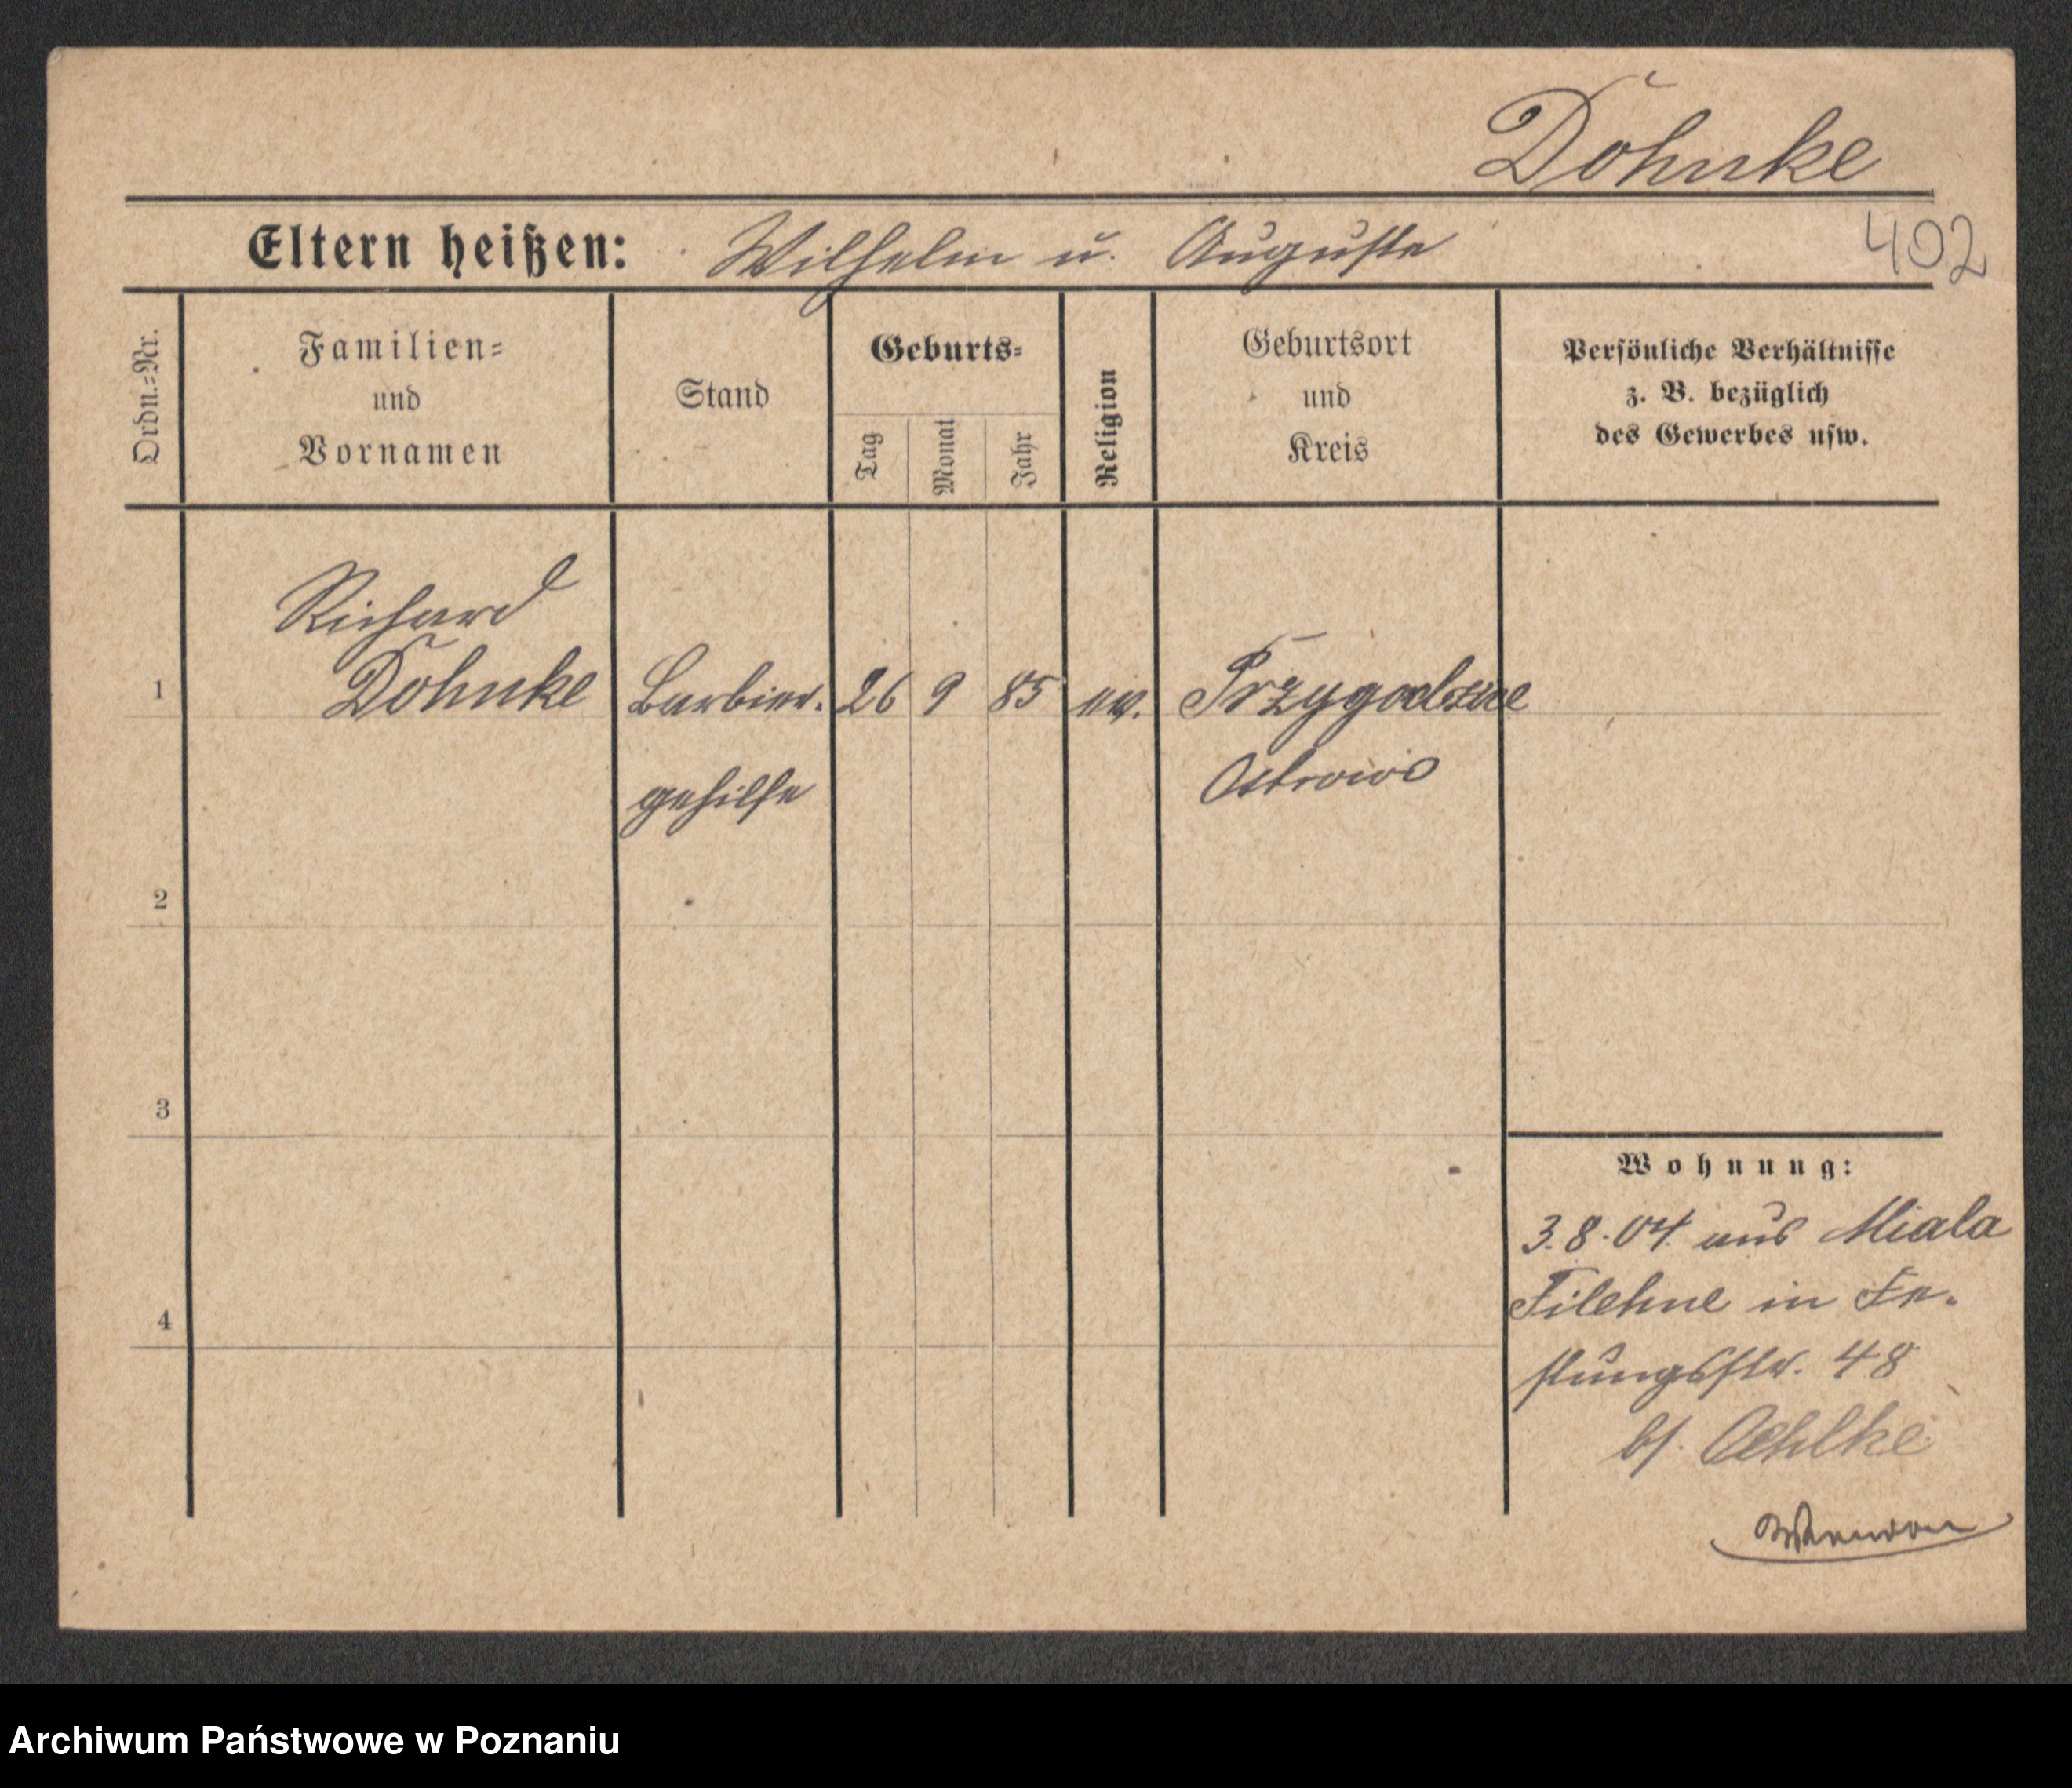 Dohnke
Eltern heißen: Wilhelm u. Auguste
402
Ordn.=Nr.
Familien=
und
Vornamen
Stand
Geburts=
Tag
Monat
Jahr
Religion
Geburtsort
und
Kreis
Persönliche Verhältnisse
z. B. bezüglich
des Gewerbes usw.
Richard
1 Dohnke Barbier. 26 9 85 ev. Przygodzice
gehilfe Ostrowo
2
3
Wohnung:
3.8.04. aus Miala
Filehne in Fe-
4
stungsstr. 48
b/. Oehlke
Archiwum Państwowe w Poznaniu